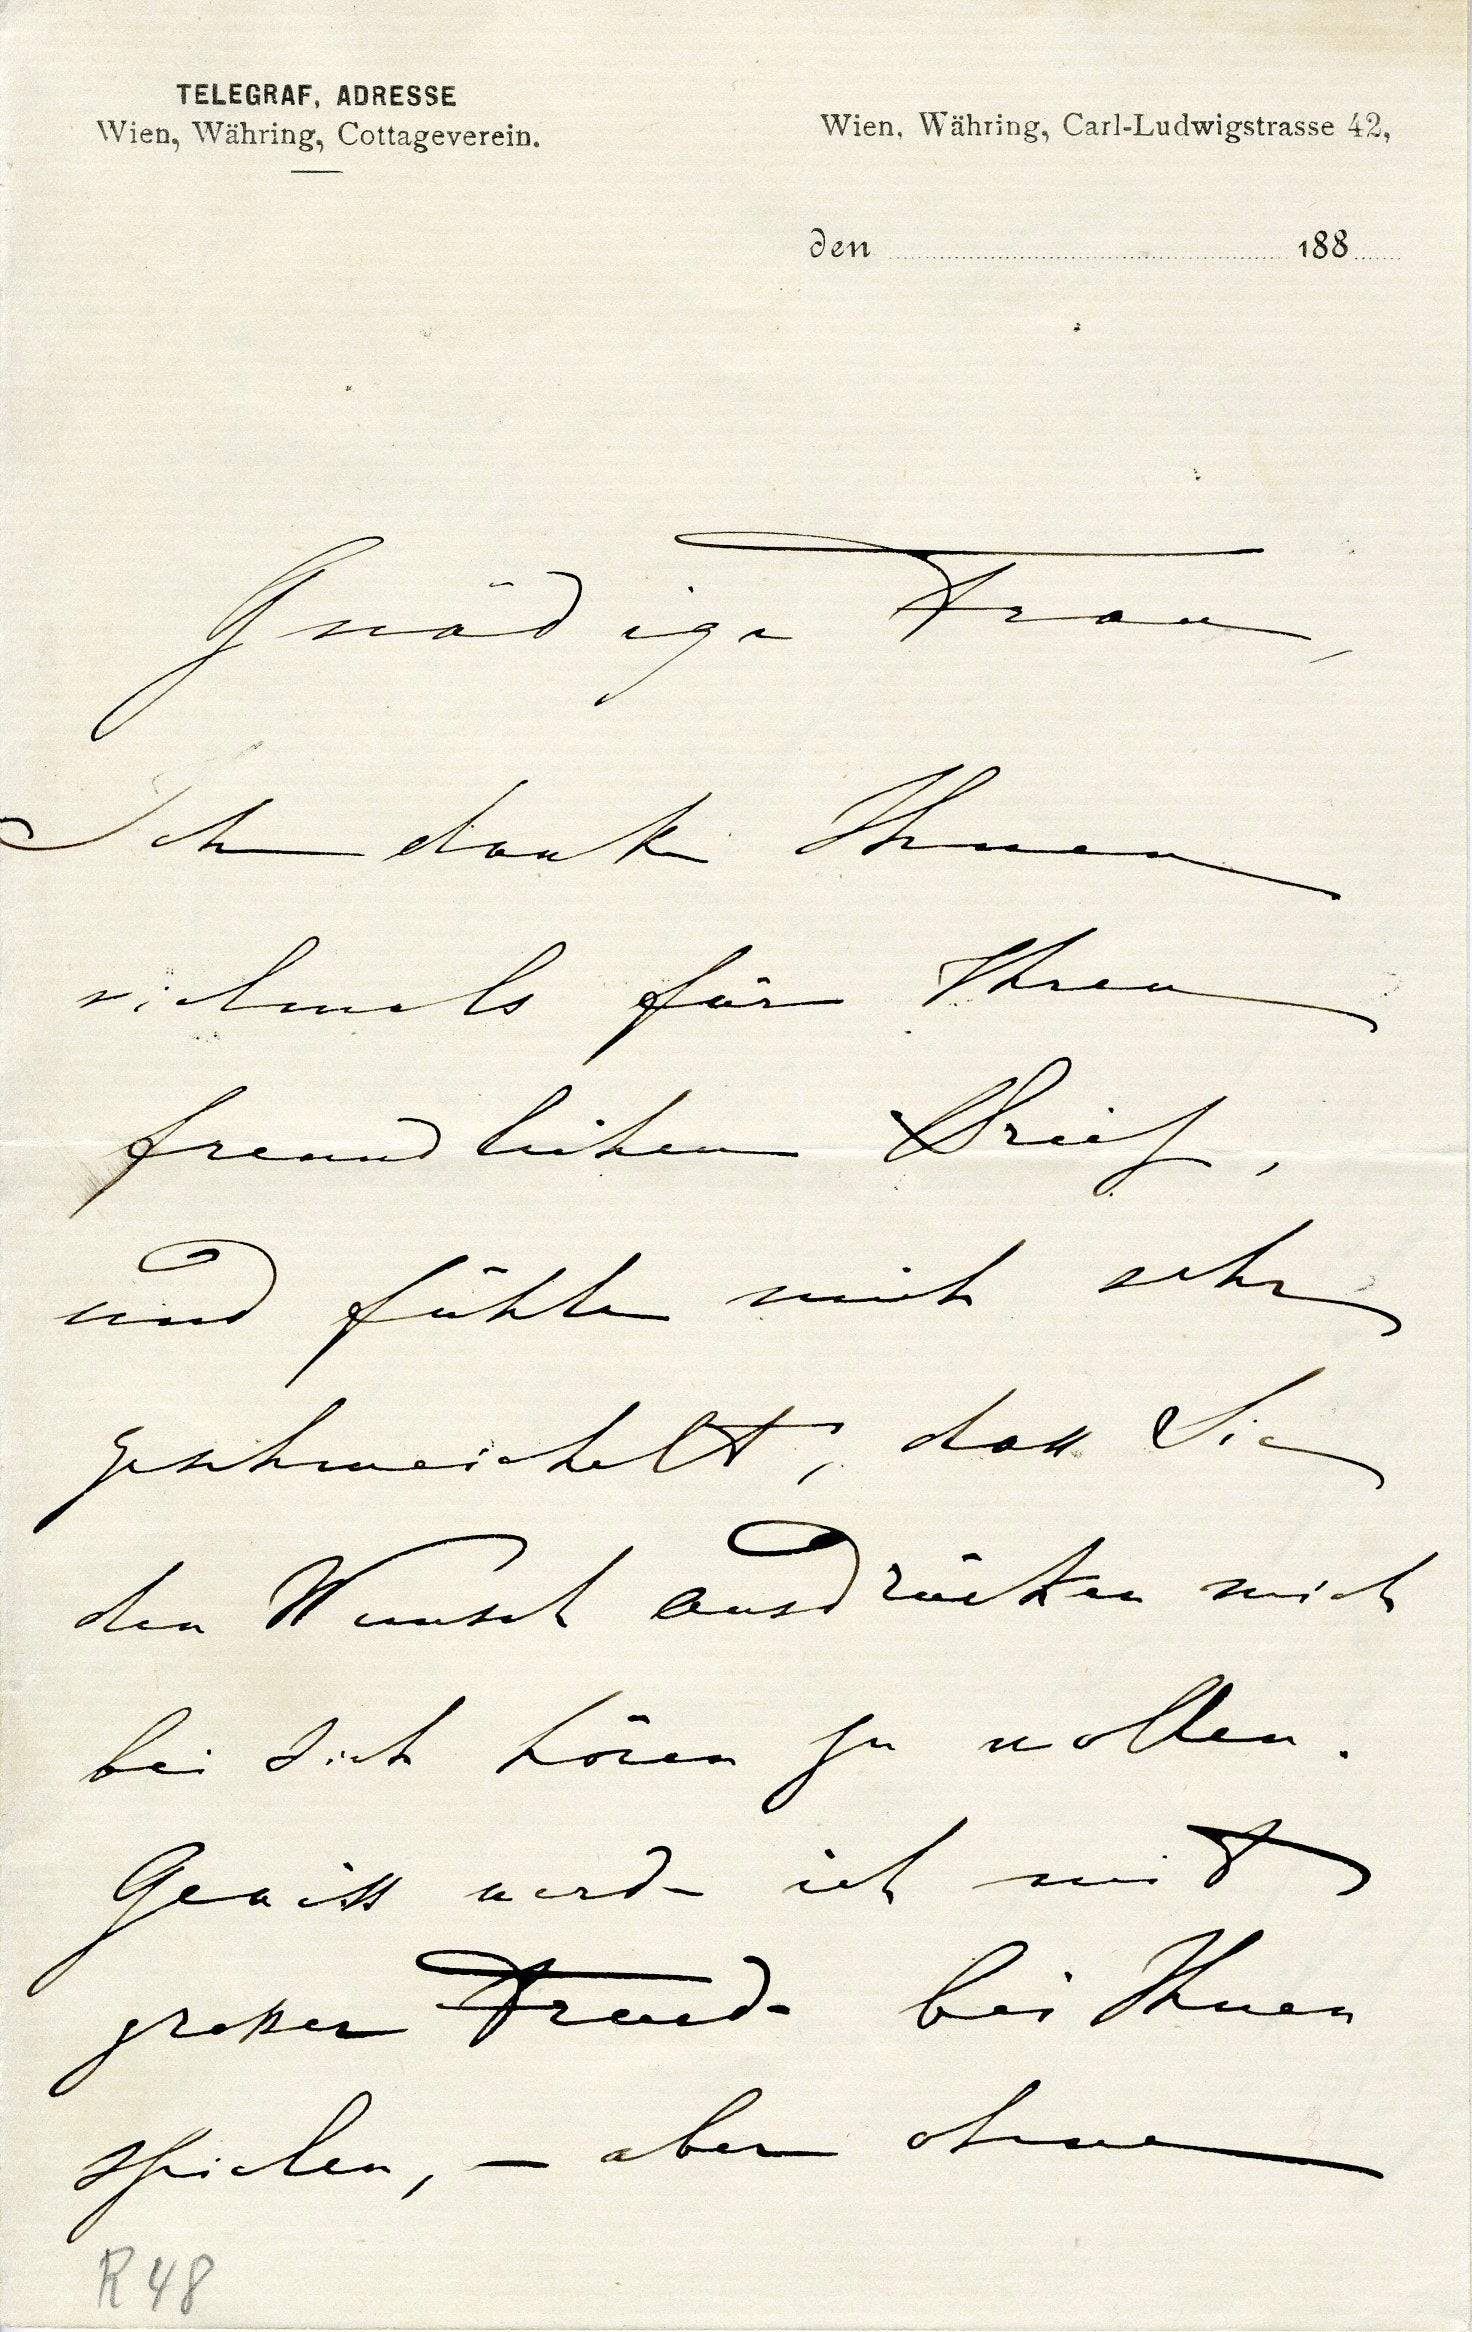 TELEGRAF, ADRESSE
Wien, Währing, Cottageverein.
Wien, Währing, Carl-Ludwigstrasse 42,
den 188
Gnädige Frau,
Ich danke Ihnen
vielmals für Ihren
freundlichen Brief,
und fühle mich sehr
geschmeichelt, dass Sie
den Wunsch ausdrücken mich
bei sich hören zu wollen.
Gewiss werde ich mit
grosser Freude bei Ihnen
spielen, – aber ohne
R 48